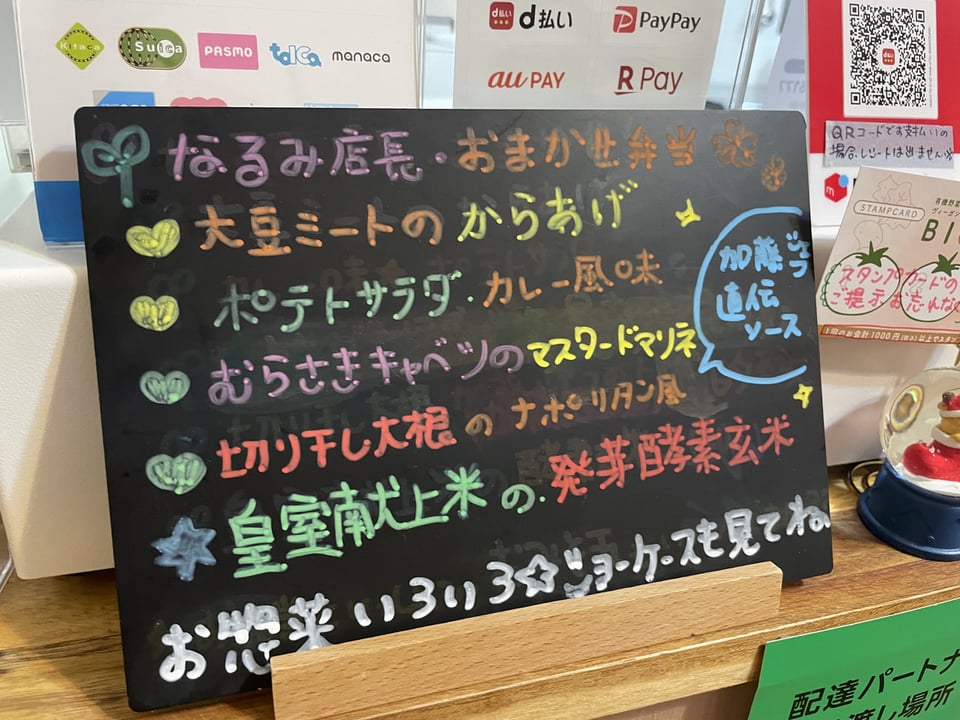 Kitaca
Suica
PASMO
TOICA
manaca
d払い
PayPay
au PAY
R Pay
QRコードでお支払いの
場合、レシートは出ません
STAMPCARD
スタンプカードの
ご提示お忘れな
1回のお会計1000円
なるみ店長・おまかせ弁当
大豆ミートのからあげ
ポテトサラダ・カレー風味
むらさきキャベツのマスタードマリネ
切り干し大根のナポリタン風
皇室献上米の・発芽酵素玄米
お惣菜いろいろ☆ショーケースも見てね
加藤シェフ
直伝
ソース
配達パートナ
渡し場所